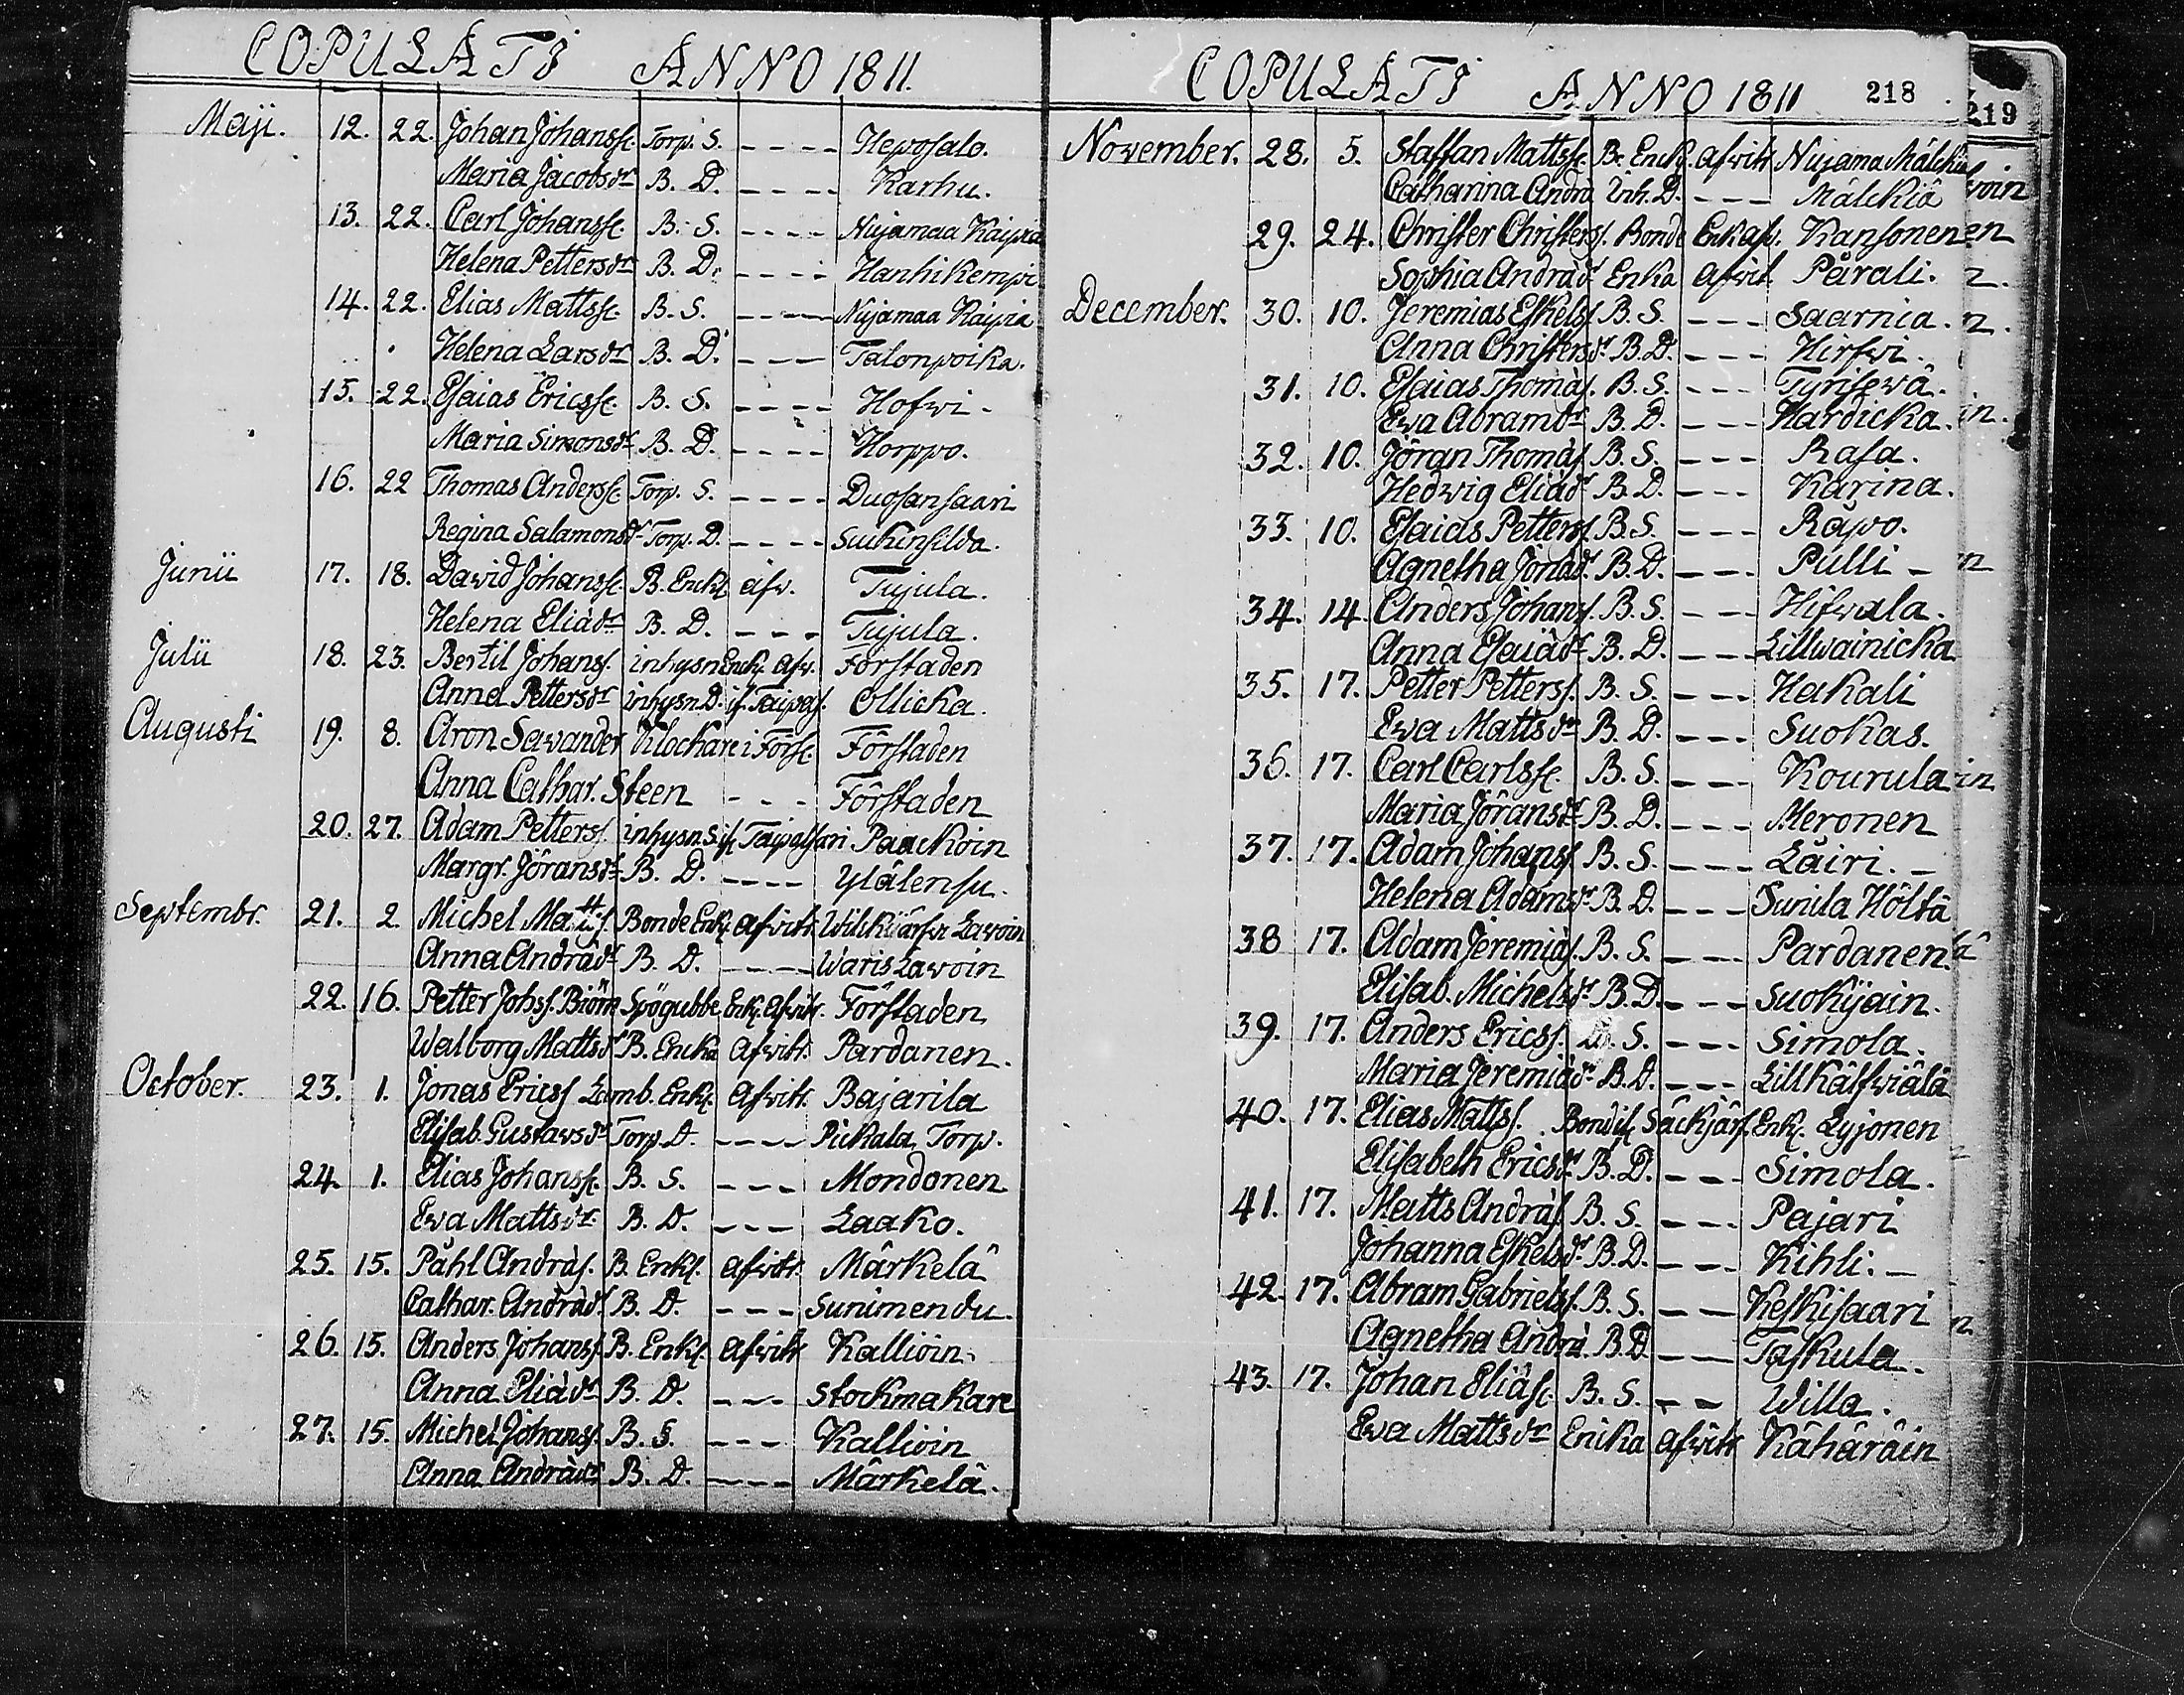 COPULATI ANNO 1811.
Maji. 12. 22. Johan Johansse. Torp. S. - - - - Heposalo.
Maria Jacobsdr B. D. - - - - Karhu.
13. 22. Carl Johansse. B. S. - - - - Nujamaa Kaipia
Helena Pettersdr B. D. - - - - Hanhikempi
14. 22. Elias Mattsse. B. S. - - - - Nujamaa Kaipia
Helena Larsdr B. D. - - - Talonpoika.
15. 22. Esaias Ericsse. B. S. - - - - Hofwi.
Maria Simonsdr B. D. - - - - Horppo.
16. 22 Thomas Anderse. Torp. S. - - - - Duosansaari
Regina Salamonsdr Torp. D. - - - - Suikinsilda.
Junii 17. 18. David Johansse. B. Enkl. afw. Tujula.
Helena Eliädr B. D. - - - Tujula.
Julii 18. 23. Bertil Johanss. inhysn Enkl. afw. Förstaden
Anna Pettersdr inhysn D. if. Taipals. Ollicka.
Augusti 19. 8. Aron Sawander Kilockare i Förse. Förstaden
Anna Cathar. Steen - - - Förstaden
20. 27. Adam Petterss. inhysn S. if. Taipalsari Paackoin
Margr. Jöransdr B. D. - - - - Ylälensu.
Septembr. 21. 2. Michel Mattss. Bonde Enkl. afwitt. Wilkijärfwi Lavoin
Anna Andrädr B. D. - - - - Waris Lavoin
22. 16. Petter Johss. Biörn Spögubbe Enkl. Afwitt. Förstaden
Walborg Mattsdr B. Encka Afwitt. Pardanen.
October. 23. 1. Jonas Ericss Lamb. Enkl. Afwitt. Bajarila
Elisab. Gustavsdr Torp. D. - - - - Pickala Torp.
24. 1. Elias Johansse. B. S. - - - Mondonen
Ewa Mattsdr. B. D. - - - Laako.
25. 15. Påhl Andräs. B. Enkl. afwitt. Märkelä
Cathar. Andräd. B. D. - - - Sunimendu.
26. 15. Anders Johanss. B. Enkl. afwitt Kallioin.
Anna Eliädr B. D. - - - Stockmakare
27. 15. Michel Johanss. B. S. - - - Kallioin
Anna Andrädr B. D. - - - Märkelä.
COPULATI ANNO 1811 218
November. 28. 5. Staffan Mattsse. B. Enckl. afwitt Nujama Mälckiä
Catharina Andrä Inh. D. - - - Mälckiä
29. 24. Christer Christers. Bonde Enk. afw. Kansonen
Sophia Andräd Enka afwit. Pärali.
December. 30. 10. Jeremias Eskelss. B. S. - - - Saarnia.
Anna Christersdr B. D. - - - Hirfwi.
31. 10. Esaias Thomäs. B. S. - - - Tyrisewä.
Ewa Abramdr B. D. - - - Hardicka.
32. 10. Jöran Thomäs B. S. - - - Rasa.
Hedwig Eliädr B. D. - - - Karina.
33. 10. Esaias Petterss. B. S. - - - Räpo.
Agnetha Jonäd. B. D. - - - Pulli -
34. 14. Anders Johans. B. S. - - - Hifwala.
Anna Esaiädr B. D. - - - Lillwainicka
35. 17. Petter Petterss. B. S. - - - Hakali
Ewa Mattsdr B. D. - - - Suokas.
36. 17. Carl Carlsse. B. S. - - - Kourula
Maria Jöransdr B. D. - - - Meronen
37. 17. Adam Johanss. B. S. - - - Läiri. -
Helena Adamsdr B. D. - - - Sunila Höltä
38 17. Adam Jeremiäs. B. S. - - - Pardanen.
Elisab. Michelsdr B. D. - - - Suokijain.
39. 17. Anders Ericss. B. S. - - - Simola.
Maria Jeremiädr B. D. - - - Lillkälfwiälä
40. 17. Elias Mattss. Bond if. Säckjärf. Enkl. Lyjonen
Elisabeth Ericsdr B. D. - - - Simola.
41. 17. Matts Andräs B. S. - - - Pajari
Johanna Eskelsdr B. D. - - - Kihli. -
42. 17. Abram Gabrielss. B. S. - - Keskisaari
Agnetha Andrä. B. D - - Taskula.
43. 17. Johan Eliäse. B. S. - - Willa.
Ewa Mattsdr Encka afwitt Kähäräin
219